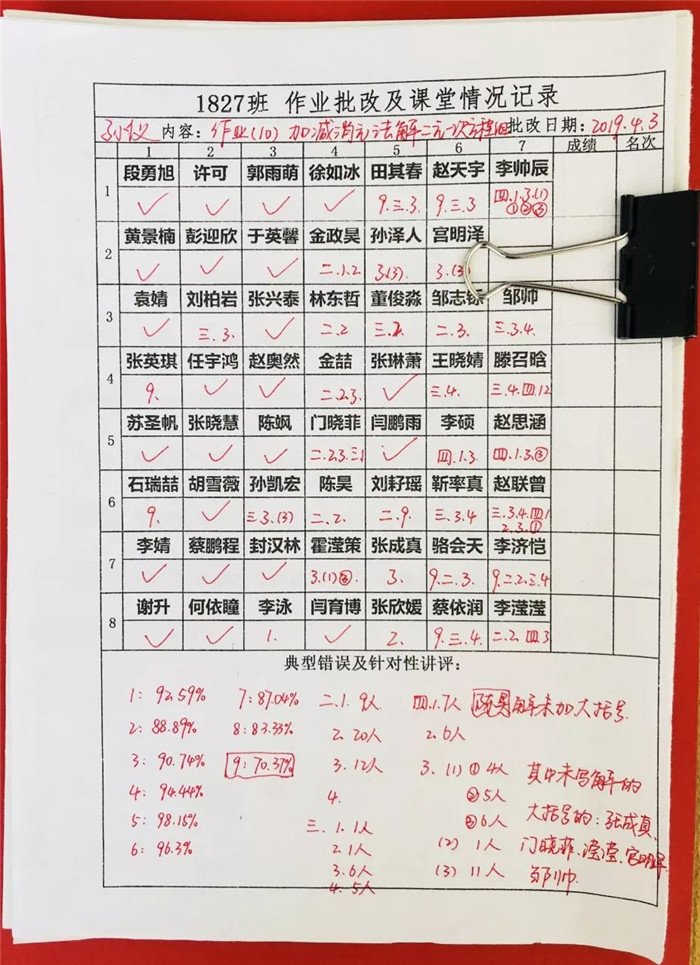 1827班 作业批改及课堂情况记录
内容: 作业(10) 加减消元法解二元一次方程组 批改日期: 2019.4.3
1 2 3 4 5 6 7 成绩 名次
1 段勇旭 许可 郭雨萌 徐如冰 田其春 赵天宇 李帅辰
✓ ✓ ✓ ✓ 9.三.3 9.三.3 四.1.3.(1)
①②③
2 黄景楠 彭迎欣 于英馨 金政昊 孙泽人 宫明泽
✓ ✓ ✓ 二.1.2 3(3) 3.(3
3 袁婧 刘柏岩 张兴泰 林东哲 董俊淼 邹志 邹帅
✓ 三.3. ✓ 二.2 三.2 二.3. 三.3.4.
4 张英琪 任宇鸿 赵奥然 金喆 张琳萧 王晓婧 滕召晗
9. ✓ ✓ 二.2.3. ✓ 三.4. 三.4.四.12
5 苏圣帆 张晓慧 陈飒 门晓菲 闫鹏雨 李硕 赵思涵
✓ ✓ ✓ 二.2.3.三.1 ✓ 四.1.3 四.1.3.③
6 石瑞喆 胡雪薇 孙凯宏 陈昊 刘籽瑶 靳率真 赵联曾
9. ✓ 三.3.(3) 二.2. 二.9. 三.3.4 三.3.4.四.1
2.3.①
7 李婧 蔡鹏程 封汉林 霍滢策 张成真 骆会天 李济恺
✓ ✓ ✓ 3.(1)③ 3. 9.二.3. 9.二.2.三.4
8 谢升 何依瞳 李泳 闫育博 张欣媛 蔡依润 李滢滢
✓ ✓ 1. ✓ 2. 9.三.4. 二.2.四.3
典型错误及针对性讲评:
1: 92.59% 7: 87.04% 二.1. 9人 四.1.7人 陈昊解未加大括号
2: 88.89% 8: 83.33% 2. 20人 2.6人
3: 90.74% 9: 70.37% 3. 12人 3. (1) ①4人 其中未写解的
4: 94.44% 4. ②5人 大括号的: 张成真
5: 98.15% 三. 1. 1人 ③6人
6: 96.3% 2. 1人 (2) 1人 门晓菲、滢滢、宫明泽
3. 6人 (3) 11人 邹帅
4. 5人